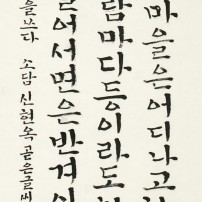 마을은어디나고
담마다등이라도
어서면은반겨
을쓰다 소담 신현옥 곧은글씨